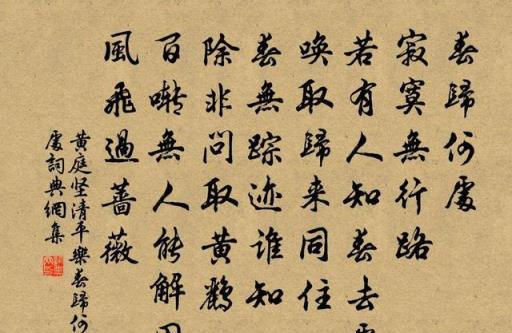 春歸何處
寂寞無行路
若有人知春去處
喚取歸来同住
春無踪迹誰知
除非問取黄鸝
百囀無人能解因
風飛過薔薇
黄庭坚清平樂春歸何
處詞典網集